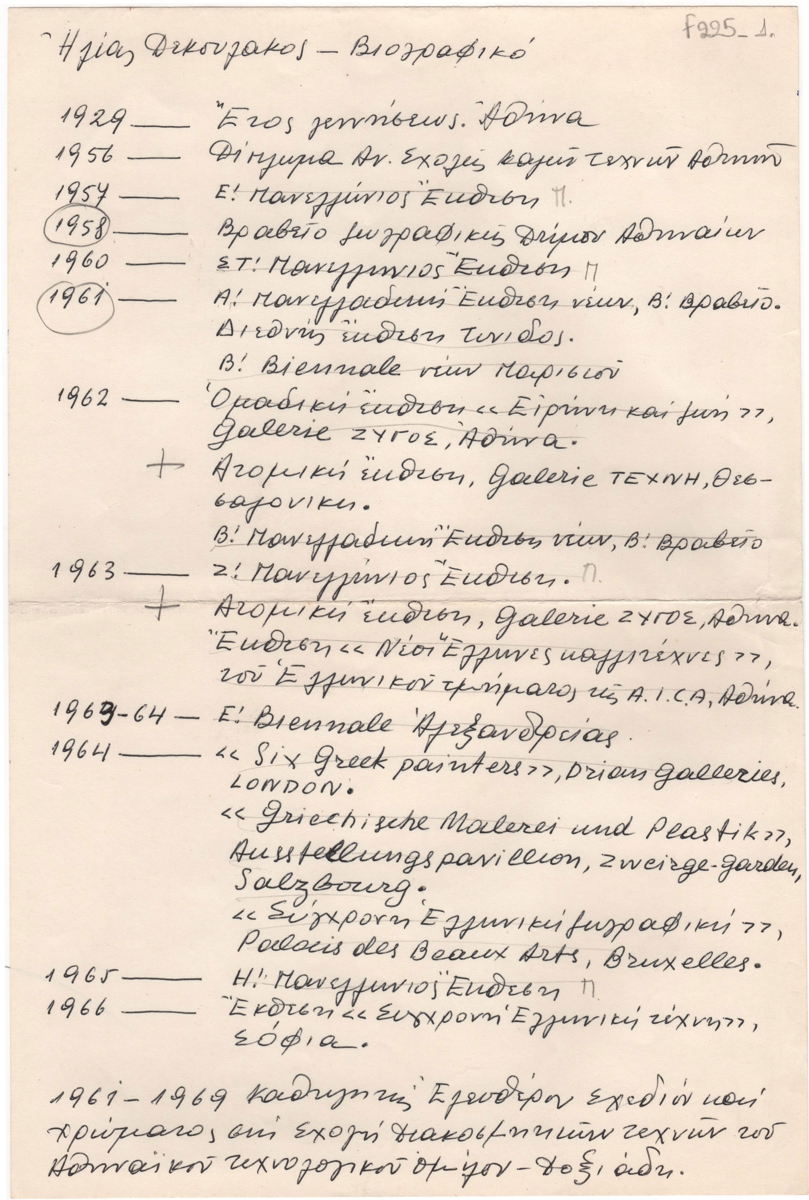 f225_1.
Ἠλίας Δεκουλάκος – Βιογραφικό
1929 — Ἔτος γεννήσεως. Ἀθήνα
1956 — Δίπλωμα Αν. Σχολῆς καλῶν τεχνῶν Ἀθηνῶν
1957 — Ε! Πανελλήνιος Ἔκθεση Π.
1958 — Βραβεῖο ζωγραφικῆς Δήμου Ἀθηναίων
1960 — ΣΤ! Πανελλήνιος Ἔκθεση Π
1961 — Α! Πανελλαδική Ἔκθεση νέων, Β! Βραβεῖο.
Διεθνής ἔκθεση Τυνιδος.
Β! Biennale νέων Παρισιοῦ
1962 — Ὁμαδική ἔκθεση «Εἰρήνη καί ζωή»,
Galerie ΖΥΓΟΣ, Ἀθήνα.
+ Ατομική ἔκθεση, Galerie ΤΕΧΝΗ, Θεσ-
σαλονικη.
Β! Πανελλαδική Ἔκθεση νέων, Β! Βραβεῖο
1963 — Ζ! Πανελλήνιος Ἔκθεση. Π.
+ Ατομική ἔκθεση, Galerie ΖΥΓΟΣ, Ἀθήνα.
Ἔκθεση «Νέοι Ἕλληνες καλλιτέχνες»,
τοῦ Ἑλληνικοῦ τμήματος τῆς A.I.C.A, Ἀθήνα.
1963-64 — Ε! Biennale Ἀλεξανδρείας.
1964 — «Six Greek painters», Drian Galleries,
LONDON.
«Griechische Malerei und Plastik»,
Ausstellungspavillion, Zweirge-Garden,
Salzbourg.
«Σύγχρονη Ἑλληνική ζωγραφική»,
Palais des Beaux Arts, Bruxelles.
1965 — Η! Πανελλήνιος Ἔκθεση Π
1966 — Ἔκθεση «Συγχρονη Ἑλληνική τέχνη»,
Σόφια.
1961 – 1969 Καθηγητής Ελευθέρου Σχεδίου καί
χρώματος στή Σχολή Διακοσμητικῶν τεχνῶν τοῦ
Ἀθηναϊκοῦ τεχνολογικοῦ ὁμίλου – Δοξιάδη.